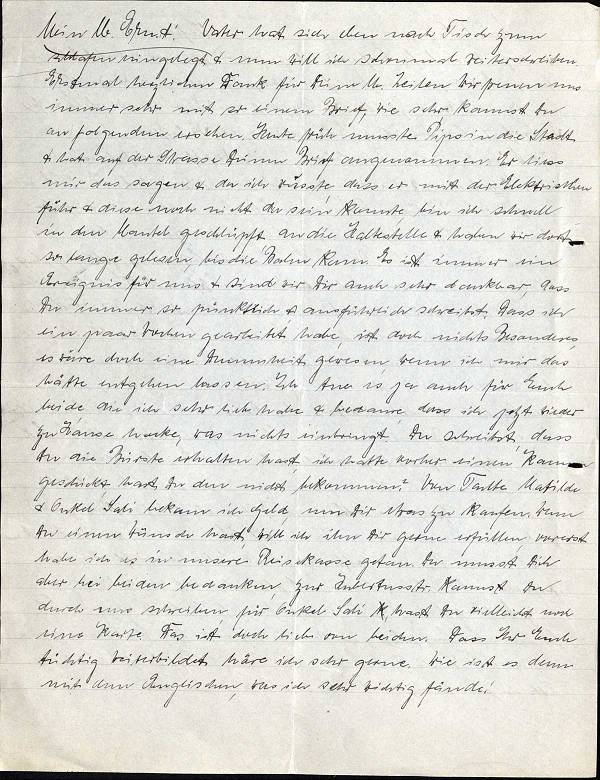 Mein lb. Ernst! Vater hat sich eben nach Tisch zum
schlafen hingelegt & nun will ich schnell weiterschreiben.
Erstmal herzlichen Dank für Deine lb. Zeilen wir freuen uns
immer sehr mit so einem Brief, wie sehr kannst Du
an folgendem ersehen. Heute früh musste Pips in die Stadt
& hat auf der Strasse Deinen Brief angenommen. Er liess
mir das sagen & da ich wusste, dass er mit der Elektrischen
fuhr & diese noch nicht da sein konnte, bin ich schnell
in den Mantel geschlüpft an die Haltestelle & haben wir dort
so lange gelesen, bis die Bahn kam. Es ist immer ein
Ereignis für uns & sind wir Dir auch sehr dankbar, dass
Du immer so pünktlich & ausführlich schreibst. Dass ich
ein paar Wochen gearbeitet habe, ist doch nichts Besonderes
es wäre doch eine Dummheit gewesen, wenn ich mir das
hätte entgehen lassen. Ich tue es ja auch für Euch
beide die ich sehr lieb habe & bedaure, dass ich jetzt wieder
zu Hause hocke, was nichts einbringt. Du schreibst, dass
Du die Bürste erhalten hast, ich hatte vorher einen Kamm
geschickt, hast Du den nicht bekommen? Von Tante Matilde
& Onkel Sali bekam ich Geld, um Dir etwas zu kaufen. Wenn
Du einen Wunsch hast, will ich ihn Dir gerne erfüllen, vorerst
habe ich es in unsere Reisekasse getan. Du musst Dich
aber bei beiden bedanken, zur Hubertusstr. kannst Du
durch uns schreiben für Onkel Sali hast Du vielleicht noch
eine Karte. Das ist doch lieb von beiden. Dass Ihr Euch
tüchtig weiterbildet wäre ich sehr gerne. Wie ist es denn
mit dem Englischen, was ich sehr wichtig fände!